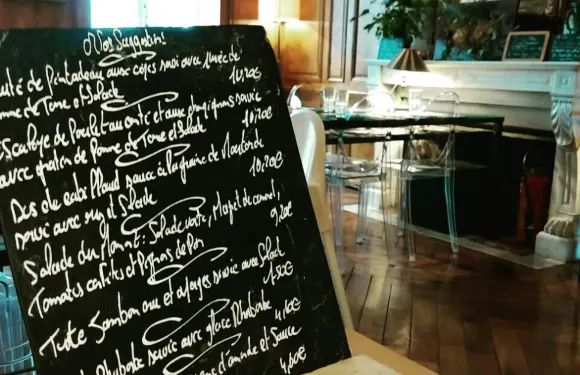 Nos Suggestions!
de Pintadeau aux cèpes servi avec Purée de
Pomme de Terre et Salade 10.20€
Escalope de Poulet au et aux servie
avec gratin de Pomme de Terre et Salade 10.20€
Dos de cabillaud sauce à la graine de Moutarde
servi avec riz et Salade 10.20€
Salade du Moment: Salade verte, Magret de canard,
Tomates confites et Pignons de Pin 9.20€
Tarte Jambon cru et servie avec Salade
7.50€
Rhubarbe servi avec glace Rhubarbe 4.10€
d'amande et Sauce
4.60€